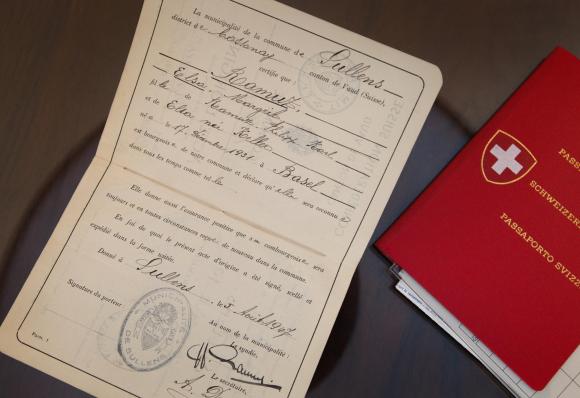 La municipalité de la commune de Sullens
district de Cossonay canton de Vaud (Suisse),
certifie que
Ramuz,
Elsa, Margrit
fille de Ramuz
et de Elsa née Keller
né à le 17 1931 à Basel
est bourgeois de notre commune et déclare qu'elle sera reconnu
dans tous les temps comme tel le
Elle donne aussi l'assurance positive que son combourgeois sera
toujours et en toute circonstances reçu de nouveau dans la commune.
En foi de quoi le présent acte d'origine a été signé, scellé et
expédié dans la forme usitée.
Donné à Sullens, le 5 Août 1947
Signature du porteur
Au nom de la municipalité:
Le syndic,
Le secrétaire,
Form. 1
MUNICIPALITÉ
DE SULLENS
SUISSE
PASS
SCHWEIZER
PASSAPORTO SVIZZ